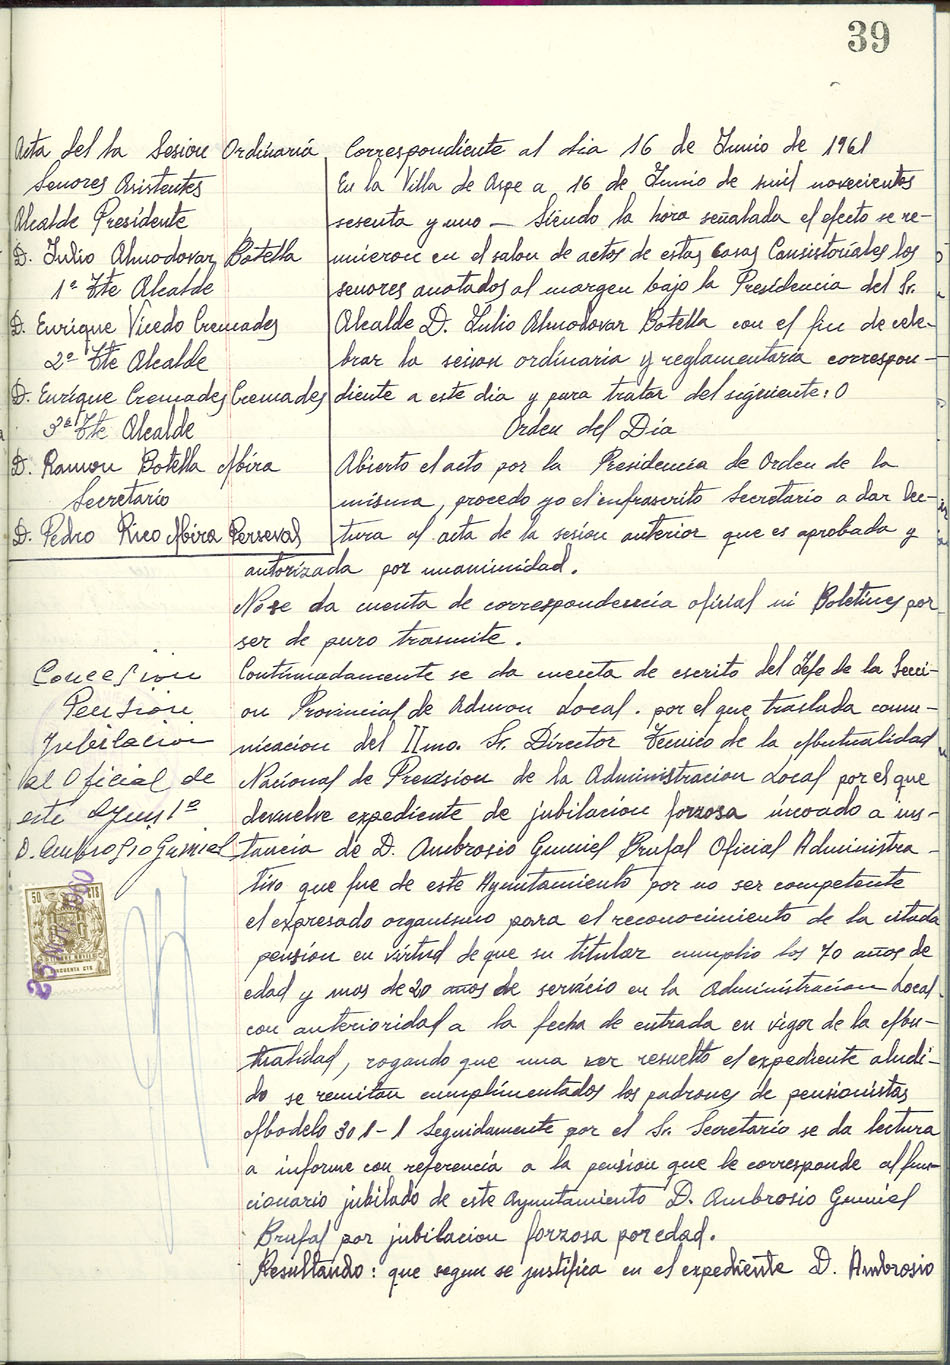 39
Acta del la Sesion Ordinaria Correspondiente al dia 16 de Junio de 1961
Señores Asistentes
Alcalde Presidente
D. Julio Almodovar Botella
1º Tte Alcalde
D. Enrique Vicedo Cremades
2º Tte Alcalde
D. Enrique Cremades Cremades
3º Tte Alcalde
D. Ramon Botella Mira
Secretario
D. Pedro Rico Mira Perseval
En la Villa de Aspe a 16 de Junio de mil novecientos
sesenta y uno — Siendo la hora señalada el efecto se re-
unieron en el salon de actos de estas Casas Consistoriales los
señores anotados al margen bajo la Presidencia del Sr.
Alcalde D. Julio Almodovar Botella con el fin de cele-
brar la sesion ordinaria y reglamentaria correspon-
diente a este dia y para tratar del siguiente: O
Orden del Dia
Abierto el acto por la Presidencia de Orden de la
misma, procedo yo el infrascrito Secretario a dar lec-
tura al acta de la sesion anterior que es aprobada y
autorizada por unanimidad.
No se da cuenta de correspondencia oficial ni Boletines por
ser de puro trasmite.
Concesion
Pension
Jubilacion
al Oficial de
este Ayunto
D. Ambrosio Gumiel
Continuadamente se da cuenta de escrito del Jefe de la Secci-
on Provincial de Admon Local. por el que traslada comu-
nicacion del IImo. Sr. Director Tecnico de la Mutualidad
Nacional de Prevision de la Administracion Local por el que
devuelve expediente de jubilacion forzosa incoado a ins-
tancia de D. Ambrosio Gumiel Brufal Oficial Administra-
tivo que fue de este Ayuntamiento por no ser competente
el expresado organismo para el reconocimiento de la citada
pension en virtud de que su titular cumplio los 70 años de
edad y mas de 20 años de servicio en la Administracion Local.
con anterioridad a la fecha de entrada en vigor de la Mu-
tualidad, rogando que una vez resuelto el expediente aludi-
do se remitan cumplimentados los padrones de pensionistas
Modelo 301-1 Seguidamente por el Sr. Secretario se da lectura
a informe con referencia a la pension que le corresponde al fun-
cionario jubilado de este Ayuntamiento D. Ambrosio Gumiel
Brufal por jubilacion forzosa por edad.
Resultando: que segun se justifica en el expediente D. Ambrosio
50 CTS
CINCUENTA CTS